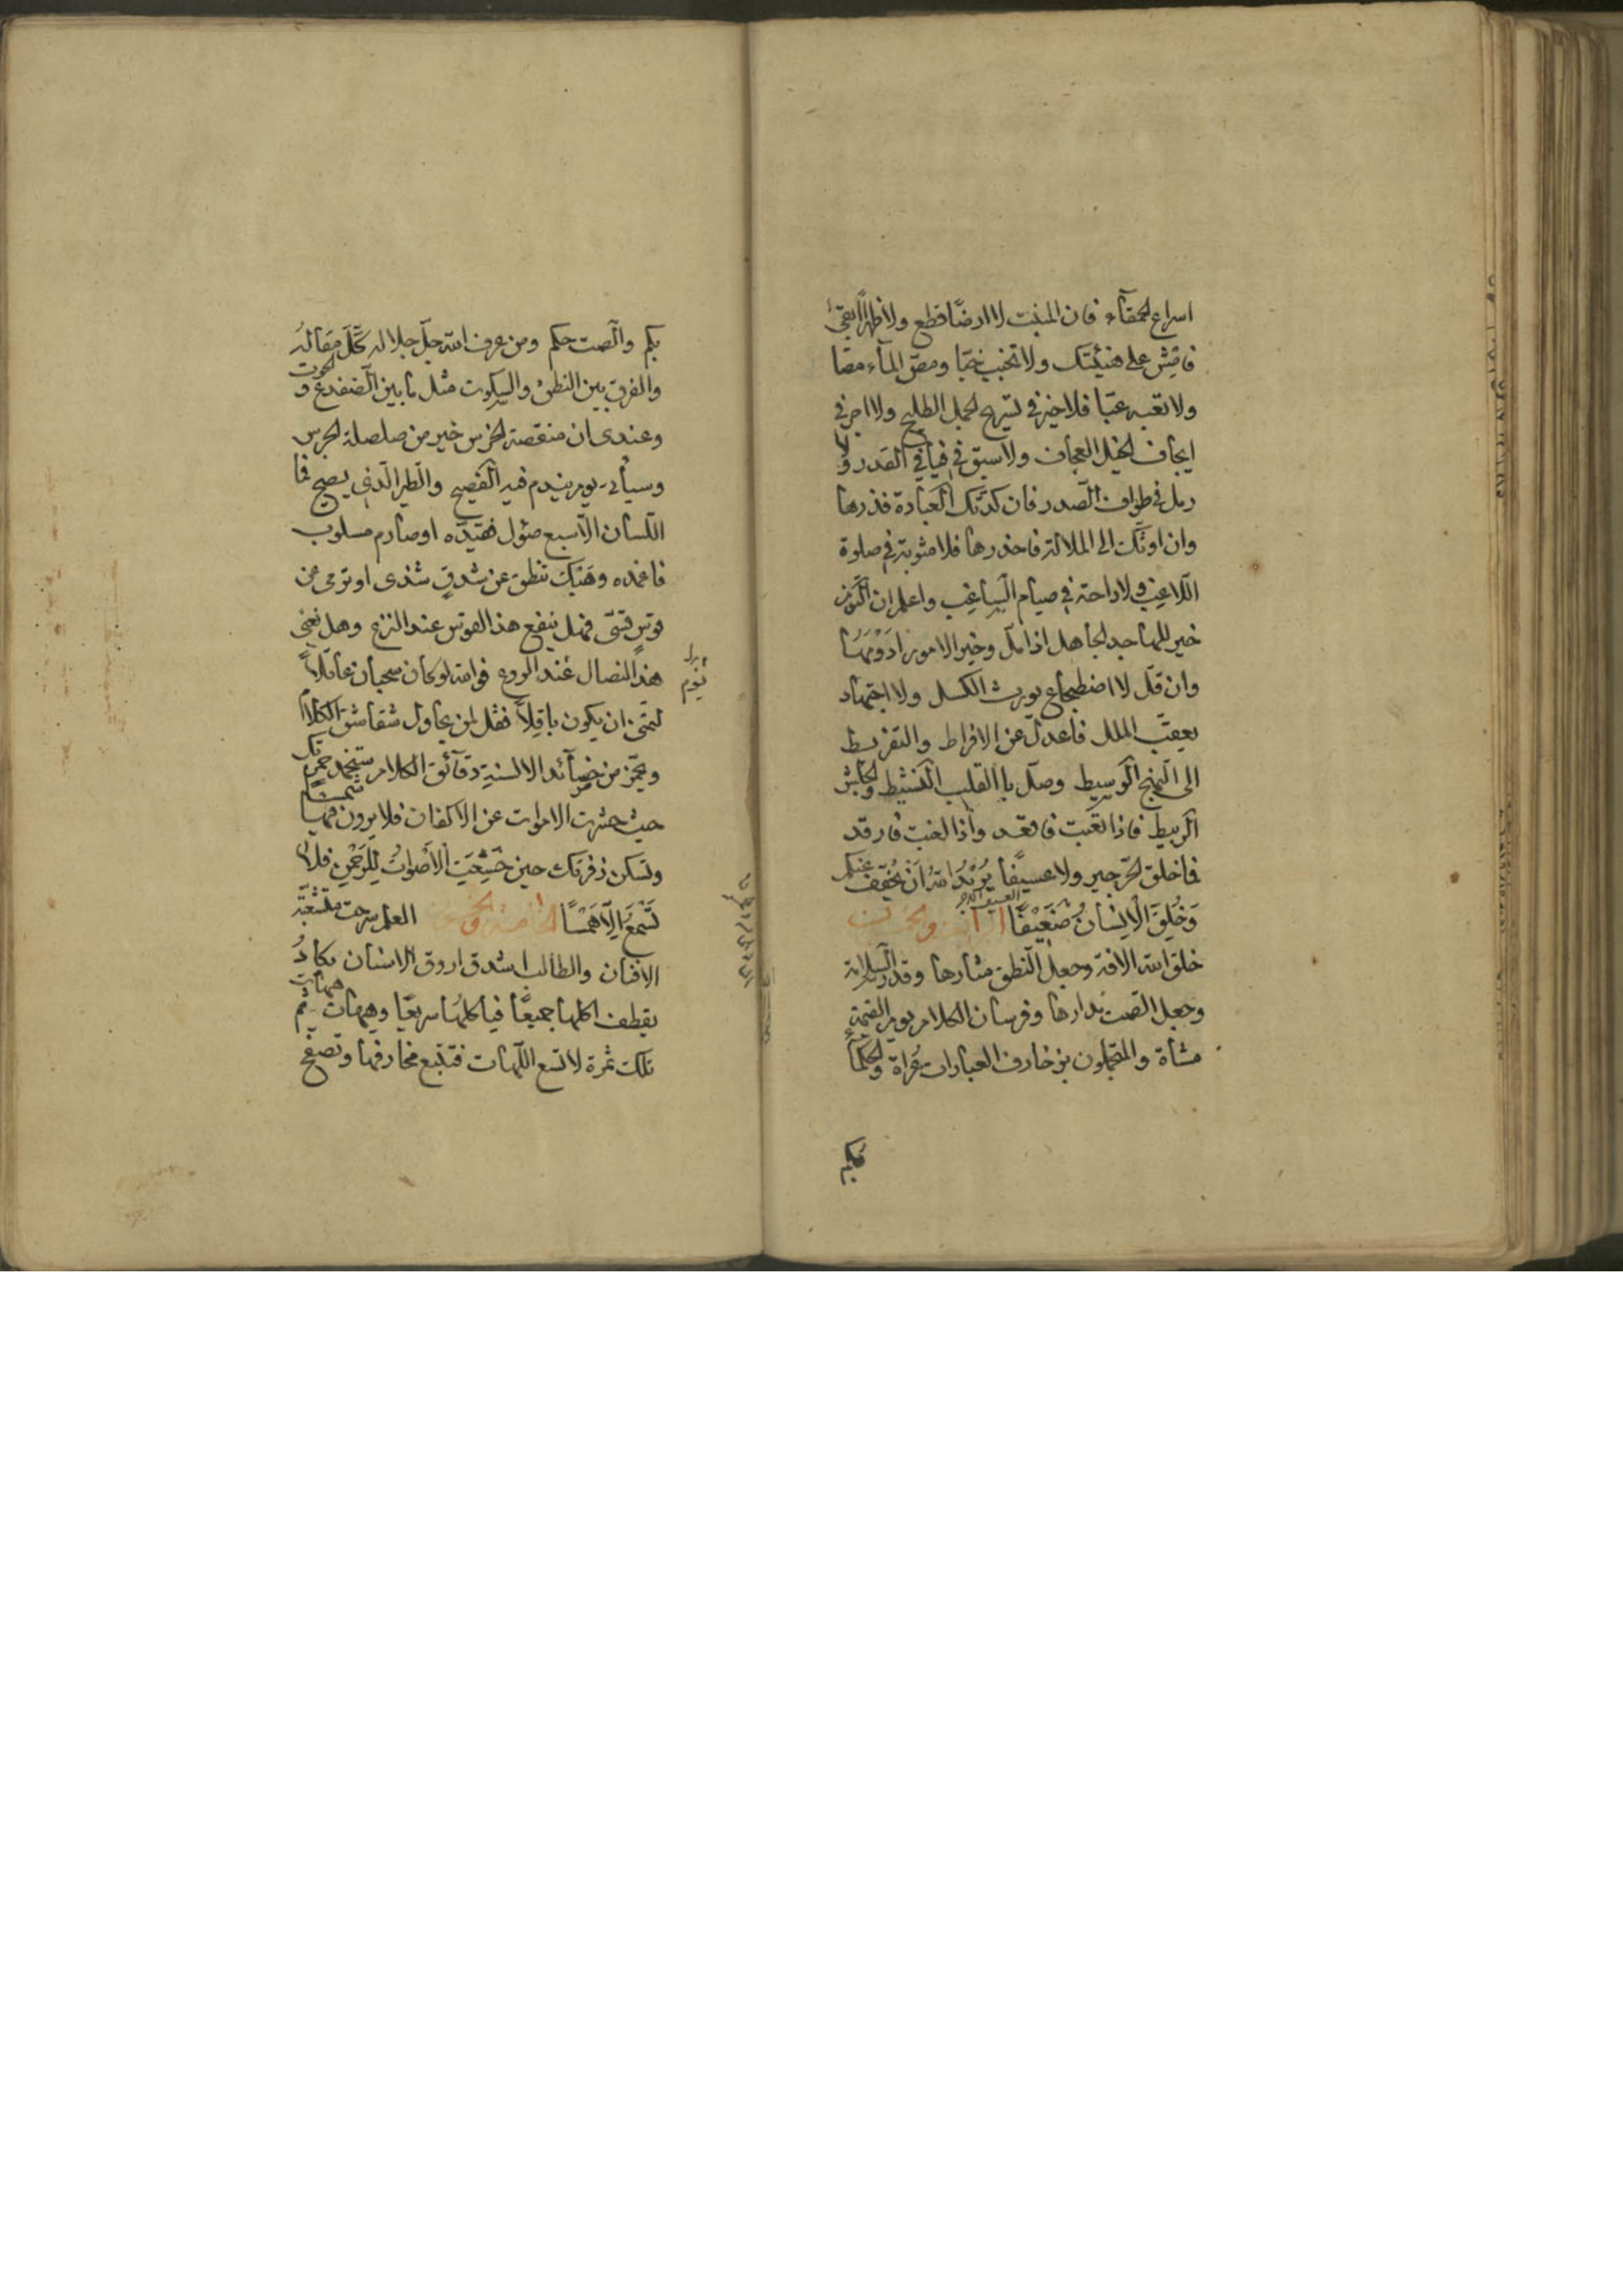 اسراع الحمقاء فان المنبت لا ارضا قطع ولا ظهرا ابقى
فامش على هنيئتك ولا تخبب خببا ومص الماء مصا
ولا تعبه عبا فلا خير في تسريح الجمل الطليح ولا اجر في
ايجاف الخيل العجاف ولا سبق في فيافي القدر ولا
رمل في طواف الصدر فان كدتك العبادة فذرها
وان اوتك الى الملالة فاحذرها فلا مثوبة في صلوة
اللاغب ولا راحة في صيام الساغب واعلم ان
خير للهاجد الجاهل اذا مل وخير الامور ادومها
وان قل لا اضطجاع يورث الكسل ولا اجتهاد
يعقب الملل فاعدل عن الافراط والتفريط
الى النهج الوسيط وصل بالقلب النشيط والجاش
الربيط فاذا تعبت فاقعد واذا لغبت فارقد
فما خلق الحر جير ولا عسيفا يُرِيدُ اللهُ اَنْ يُخَفِّفَ عَنْكُم
وَخُلِقَ الْاِنْسَانُ ضَعِيْفًا
خلق الله الافة وجعل النطق مثارها وقدر السلامة
وجعل الصمت مدارها وفرسان الكلام يوم القيمة
مشاة والمتجملون بزخارف العبارات عراة والحكماء
بكم
بكم والصمت حكم ومن عرف الله جل جلاله كل مقاله
والفرق بين النطق والسكوت مثل ما بين الضفدع والحوت
وعندى ان منقصة الخرس خير من صلصلة الجرس
وسياتى يوم يندم فيه الفصيح والطير الذى يصيح فما
اللسان الا سبع صئول فقيده او صارم مسلوب
فاغمده وهبك تنطق عن شدق شذى او ترمى عن
قوس قسى فهل ينفع هذا القوس عند النزع وهل يغنى
هذا النصال عند الروع فوالله لو كان سحبان عاقلا
لتمنى ان يكون باقلا فقل لمن يحاول شقاشق الكلام
ويجز من حصائد الالسنة دقائق الكلام ستخمد جمرتك
حيث حشرت الاموات عن الاكفان فلا يرون
وتسكن زفرتك حين خَشَعَتِ الْاَصْوَاتُ لِلرَّحْمٰنِ فَلَا
تَسْمَعُ اِلَّا هَمْسًا العلم سرحة متشعبة
الافنان والطالب اشدق اروق الاسنان يكاد
يقطف اكلها جميعا فياكلها سريعا وهيهات هيهات
تلك ثمرة لا تسع اللهات فتتبع مخارفها وتصفح